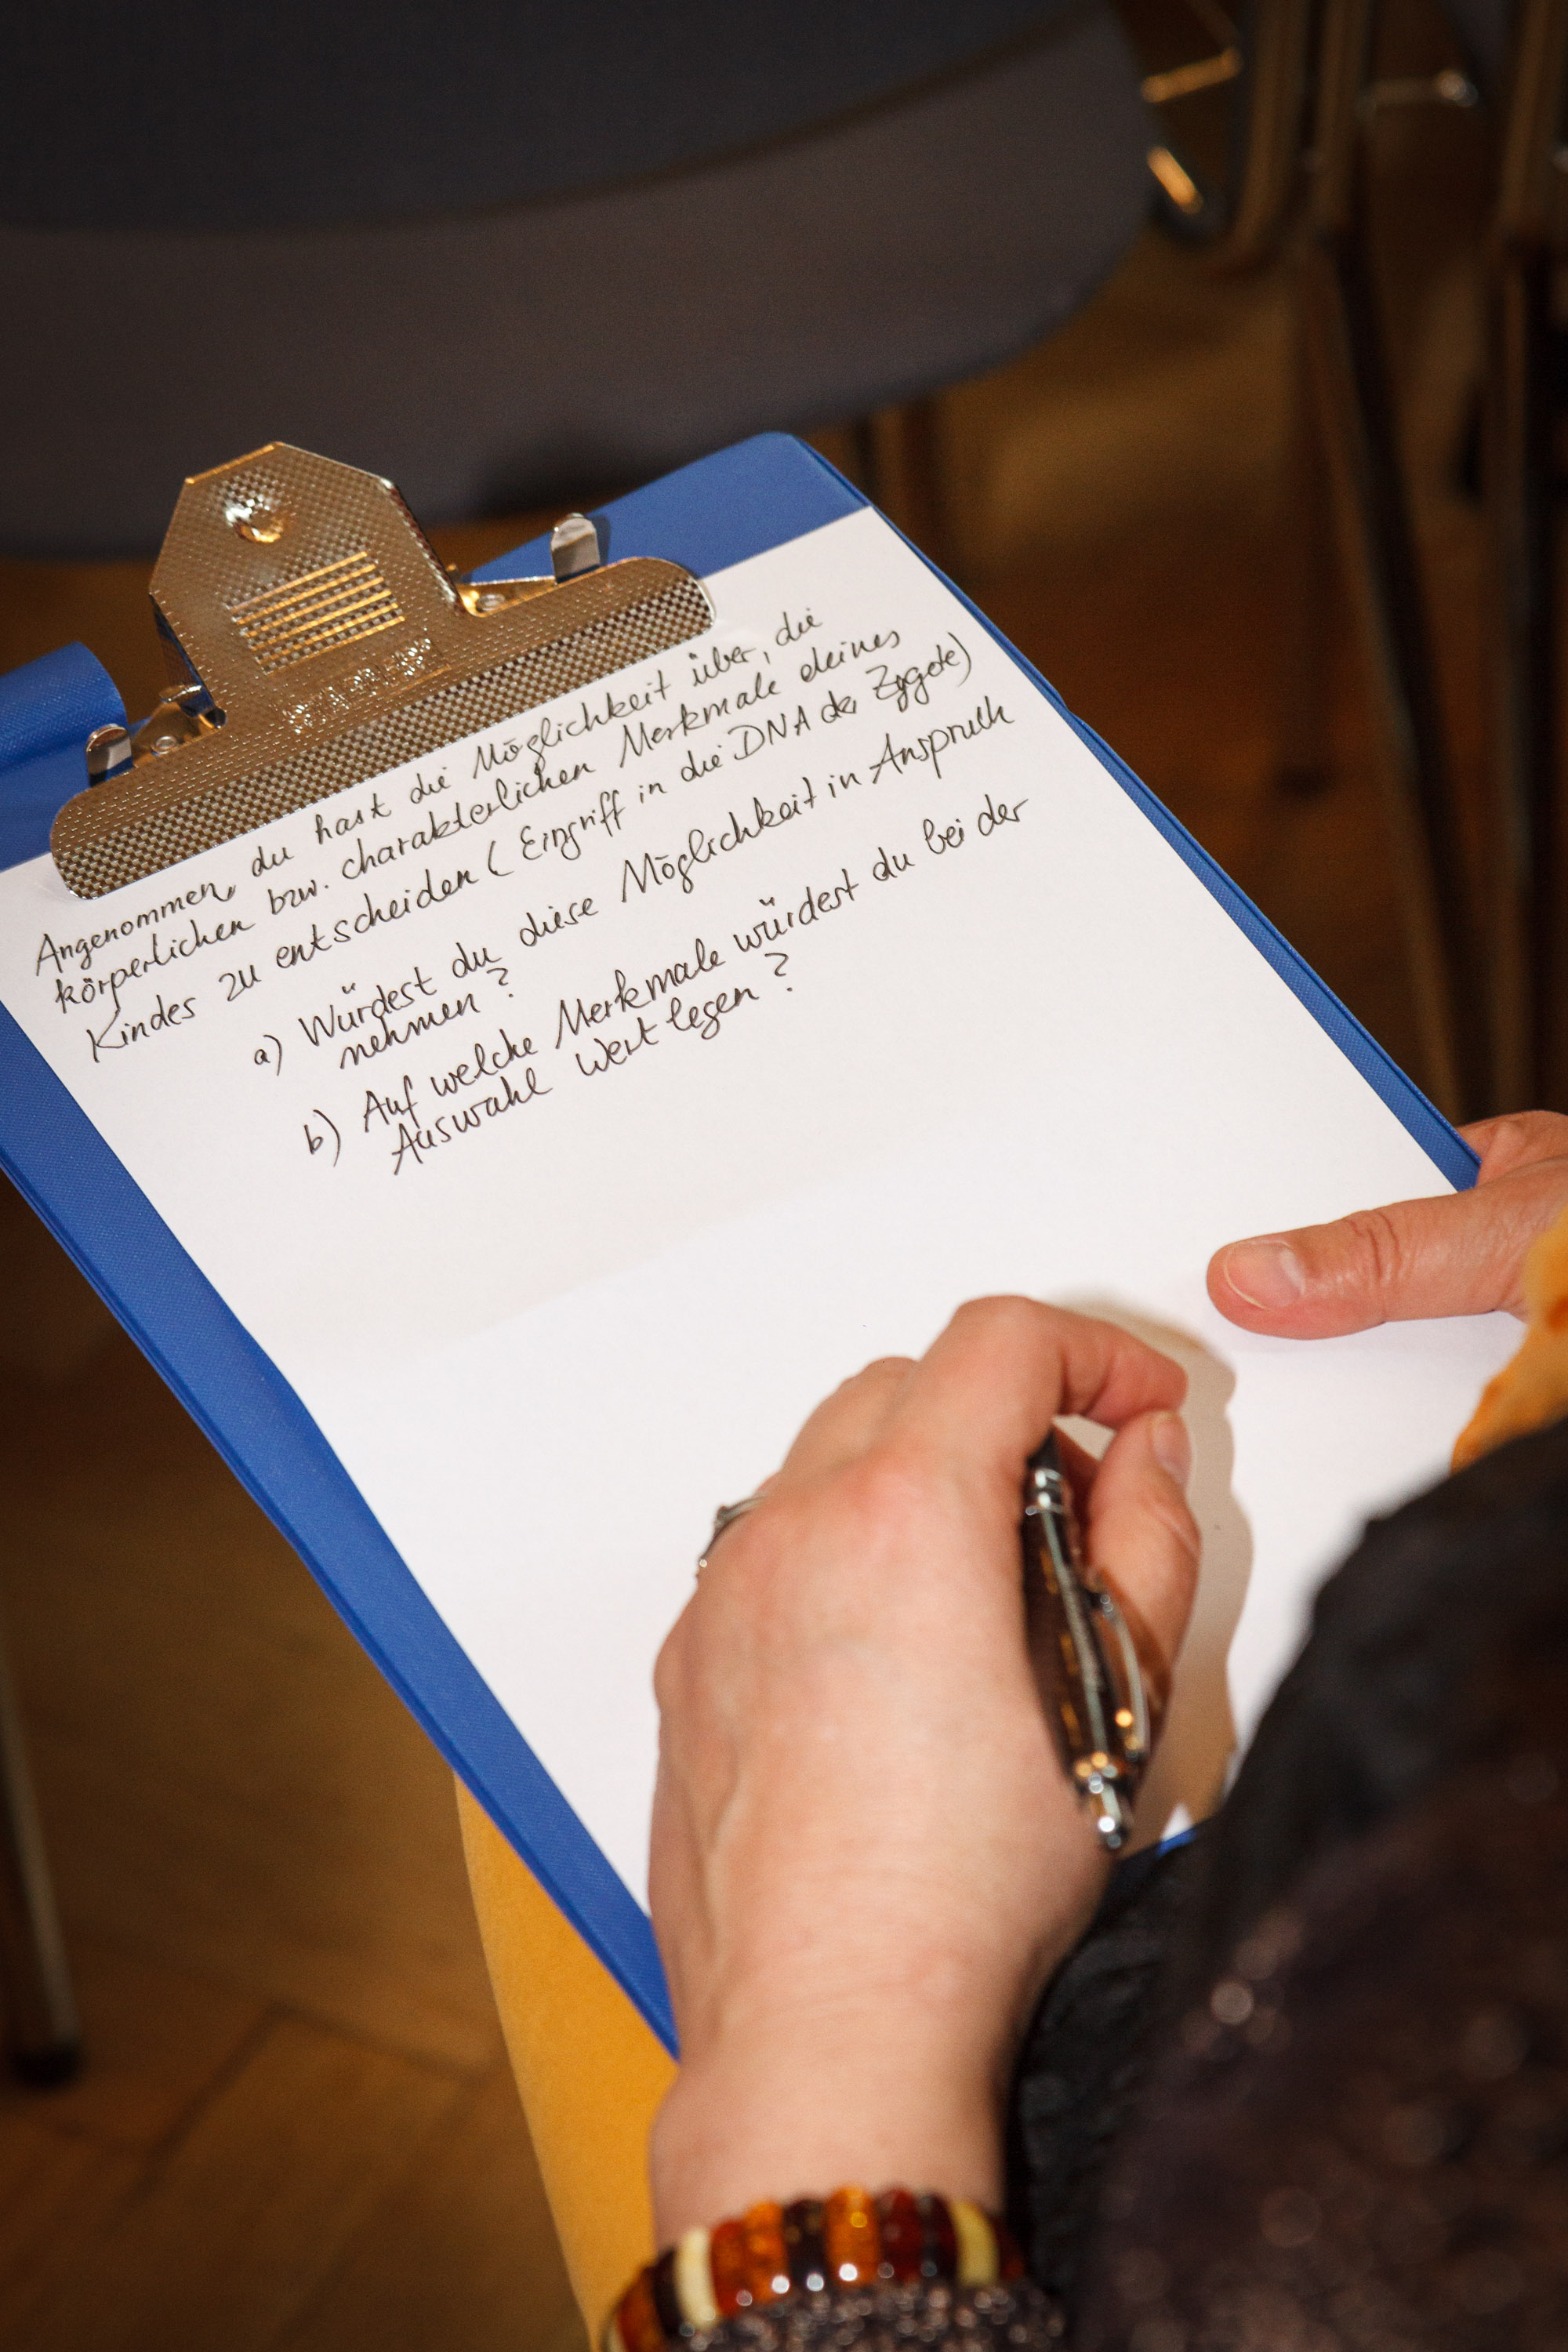 Angenommen, du hast die Möglichkeit über, die
körperlichen bzw. charakterlichen Merkmale deines
Kindes zu entscheiden (Eingriff in die DNA der Zygote)
a) Würdest du diese Möglichkeit in Anspruch
nehmen?
b) Auf welche Merkmale würdest du bei der
Auswahl Wert legen?